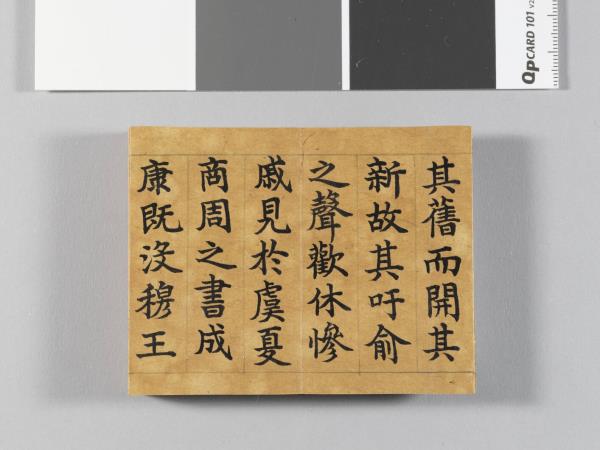 其舊而開其
新故其吁俞
之聲歡休慘
戚見於虞夏
商周之書成
康既沒穆王
QPCARD 101 v2